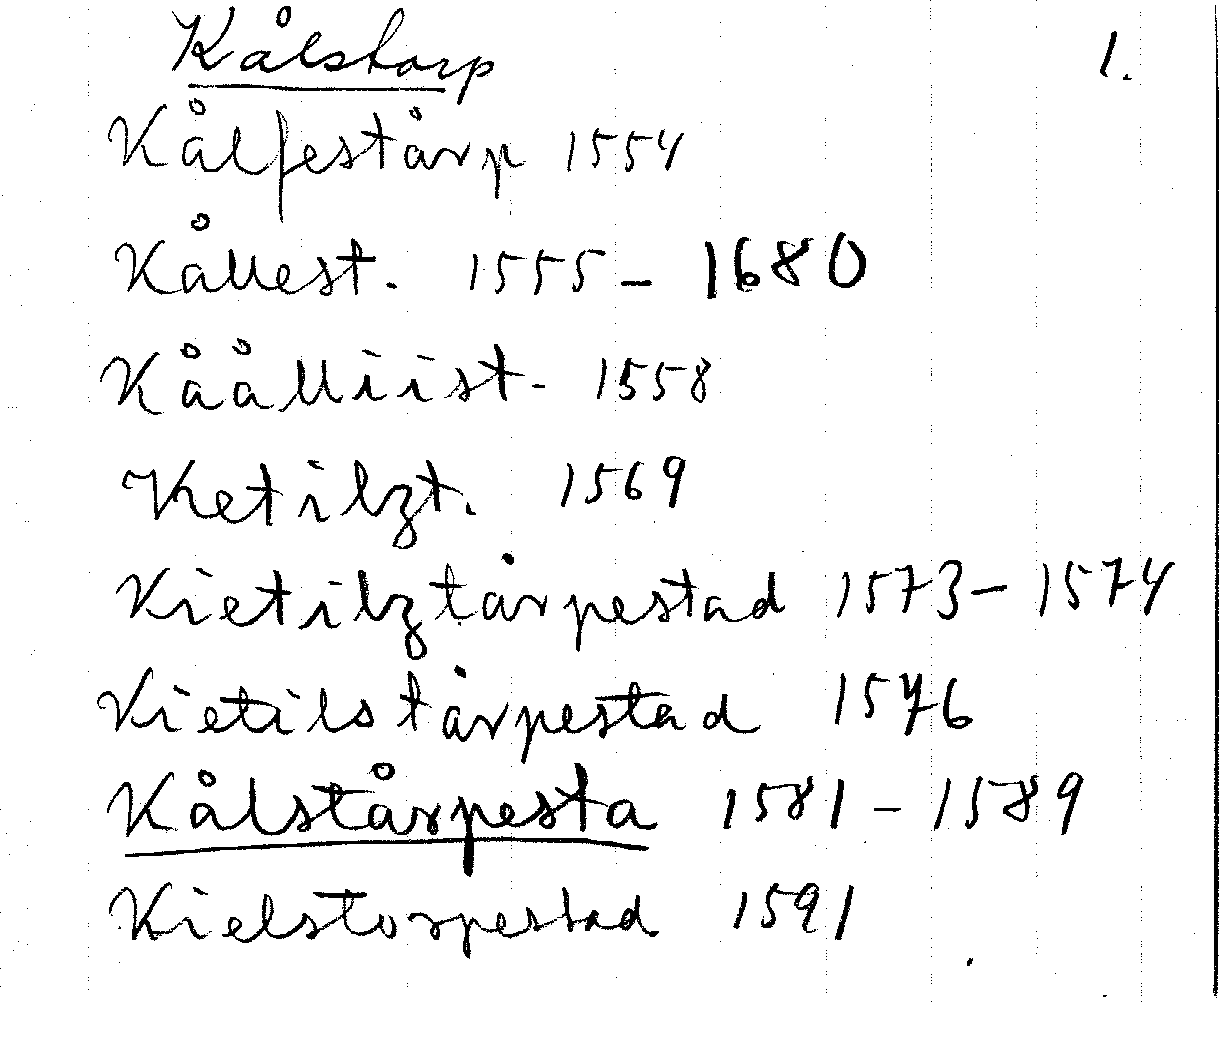 Kålstorp 1.
Kålfestårp 1554
Kållest. 1555 - 1680
Kåålliist- 1558
Ketilzt. 1569
Kietilztårpestad 1573 - 1574
Kietilstårpestad 1576
Kålstårpesta 1581 - 1589
Kielstorpestad 1591